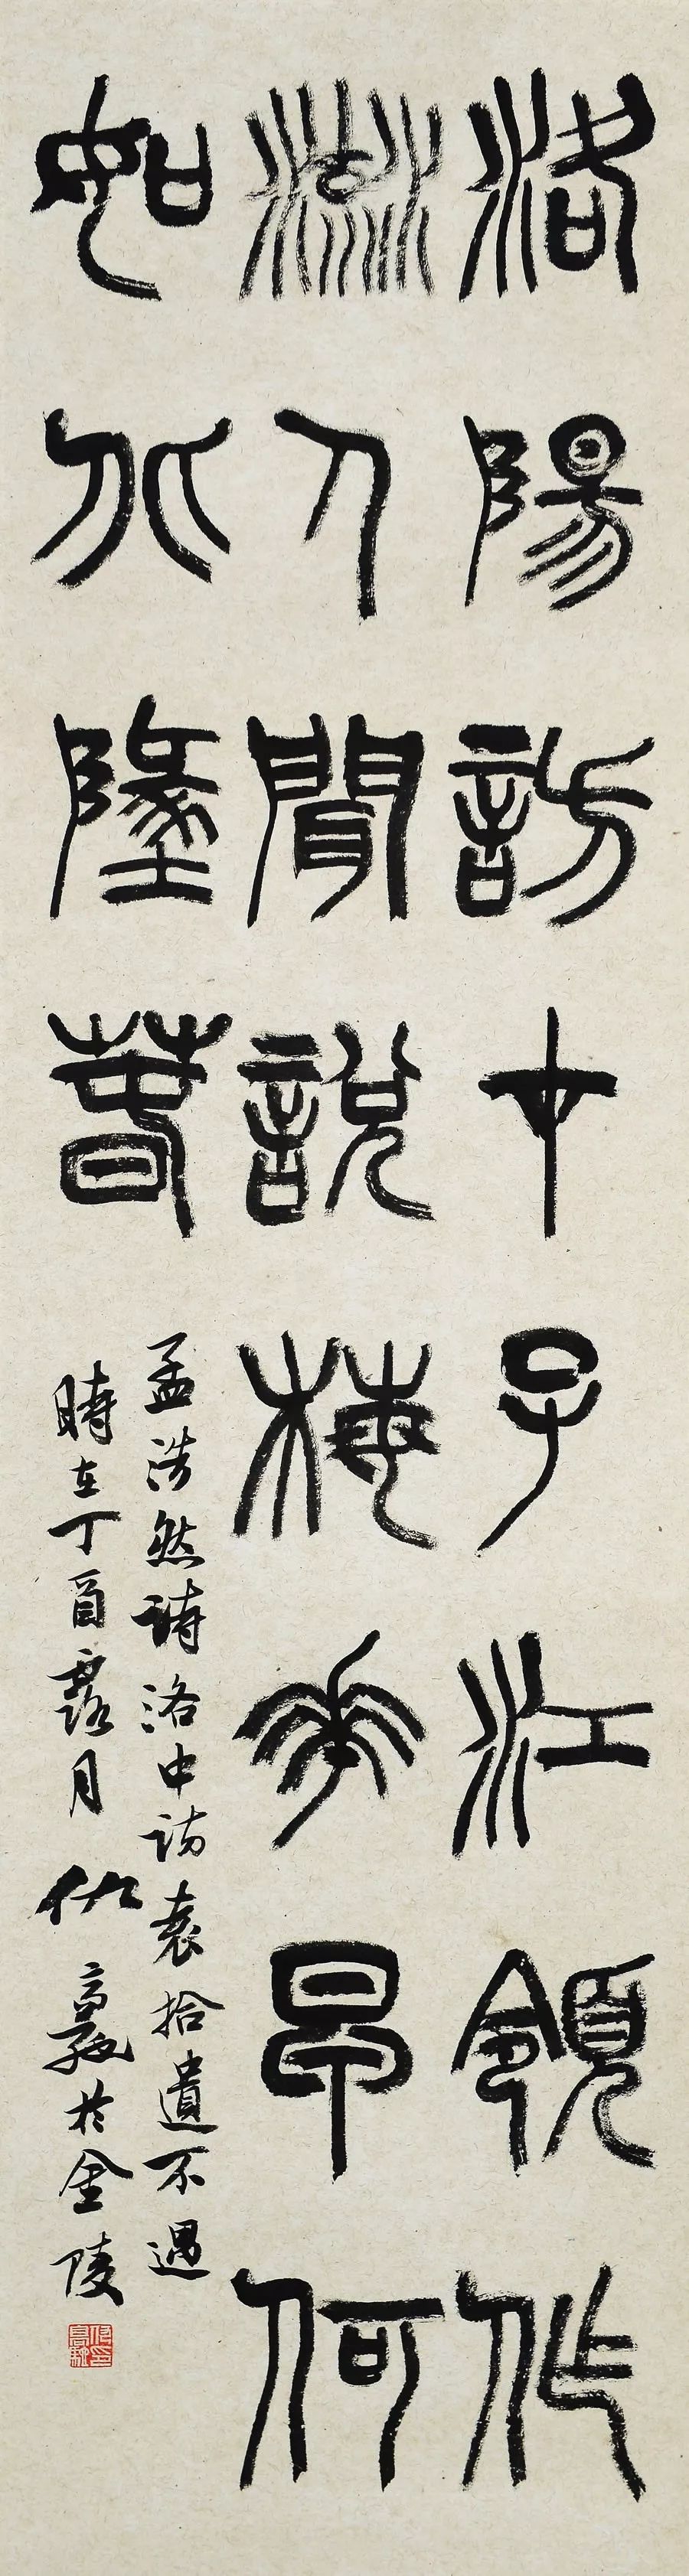 洛陽訪才子江領作
流人聞說梅花早何
如北墬萅
孟浩然詩洛中訪袁拾遺不遇
時在丁酉露月仇高馳於金陵